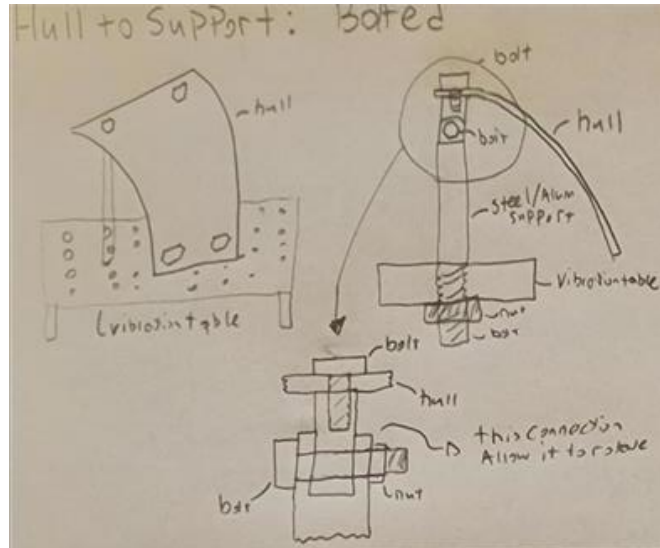 Hull to Support: Bolted
hull
(vibrosintable
bolt
bolt
hull
Steel/Alum
Support
Vibrosintable
nut
bolt
bolt
hull
this connection
Allow it to rotate
bolt
nut